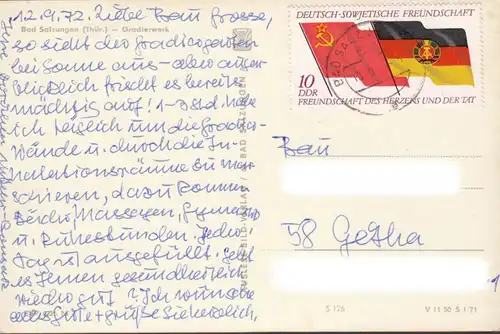 12.9.72. Liebe Frau Grosse,
Bad Salzungen (Thür.) — Gradierwerk
so sieht der Gradiergarten
bei Sonne aus - aber augen-
blicklich friert es bereits
mächtig auf! 1-2 Std. habe
ich täglich um die Gradier-
wände u. durch die In-
halationsräume zu mar-
schieren, dazu kommen
Bäder, Massagen, Gymnastik
u. Ruhestunden. Jeder
Tag ist ausgefüllt. Geht
es Ihnen gesundheitlich
wieder gut? Ich wünsche
alles Gute u. grüße Sie herzlich,
BILD-VERLAG
BAD SALZUNGEN
DEUTSCH-SOWJETISCHE FREUNDSCHAFT
10
DDR
FREUNDSCHAFT DES HERZENS UND DER TAT
BAD SALZUNGEN
Frau
58 Gotha
S 126
V 11 50 S 1/71